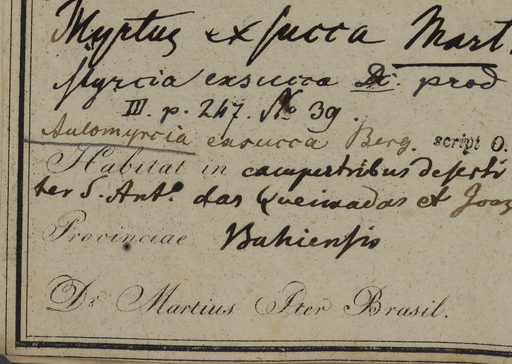 Myrtus exsucca Mart.
Myrcia exsucca DC. prod
III. p. 247. No 39.
Aulomyrcia exsucca Berg. script O.
Habitat in campestribus deserti
ter S. Ant.º das Queimadas et Joaz
Provinciae Bahiensis
Dr. Martius Iter Brasil.